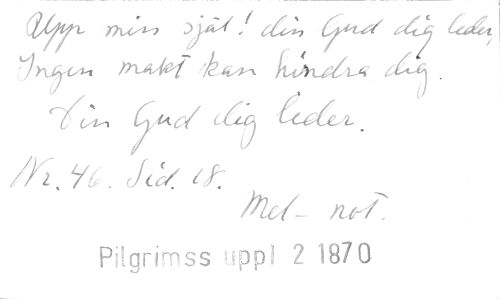 Upp min själ! din Gud dig leder,
Ingen makt kan hindra dig.
Din Gud dig leder.
Nr. 46. Sid. 18.
Mel- not.
Pilgrimss uppl 2 1870